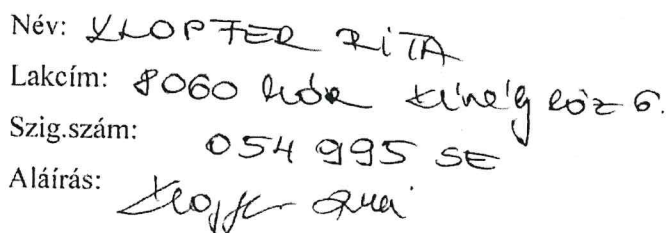 Név: KLOPFER RITA
Lakcím: 8060 Mór Király köz 6.
Szig.szám: 054 995 SE
Aláírás: Klopfer Rita